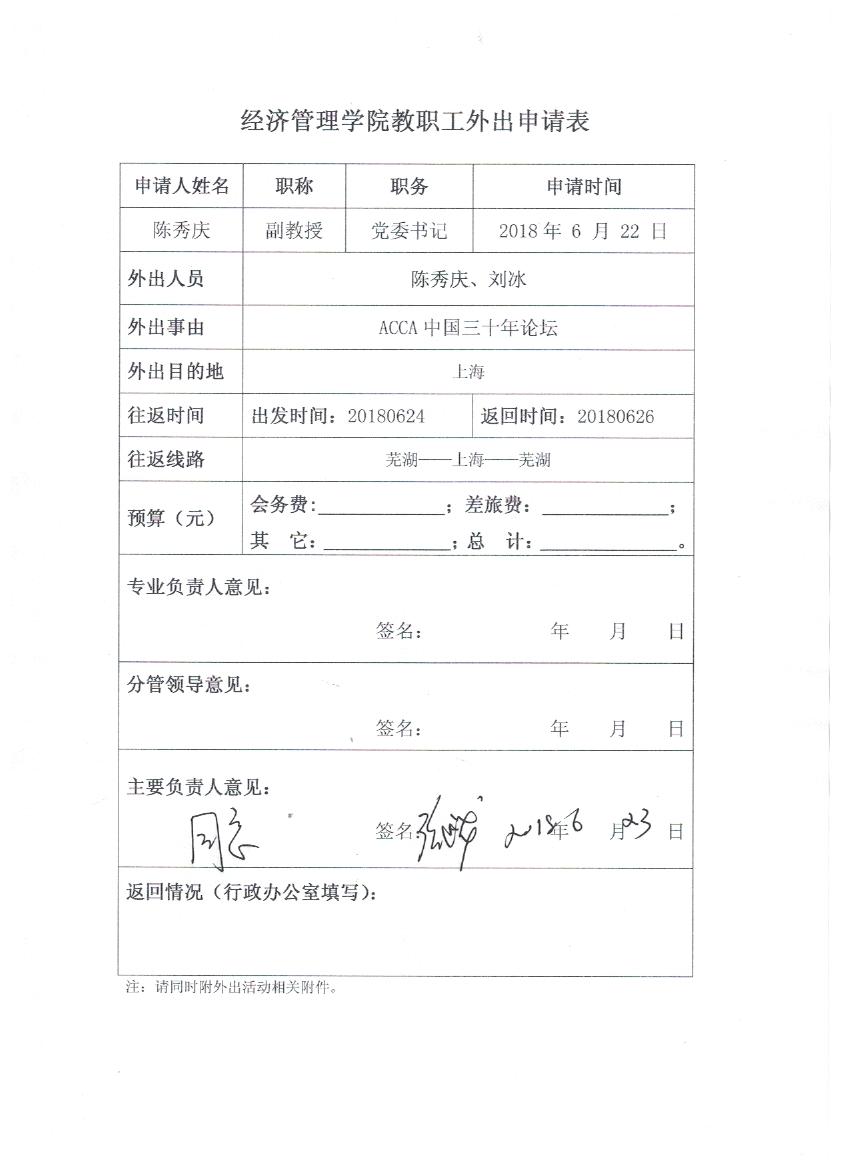 经济管理学院教职工外出申请表
申请人姓名 职称 职务 申请时间
陈秀庆 副教授 党委书记 2018 年 6 月 22 日
外出人员 陈秀庆、刘冰
外出事由 ACCA 中国三十年论坛
外出目的地 上海
往返时间 出发时间：20180624 返回时间：20180626
往返线路 芜湖——上海——芜湖
预算（元） 会务费:____________；差旅费：____________；
其 它：____________；总 计：_____________。
专业负责人意见：
签名： 年 月 日
分管领导意见：
签名： 年 月 日
主要负责人意见：
同意 签名： 2018年6 月23 日
返回情况（行政办公室填写）：
注：请同时附外出活动相关附件。